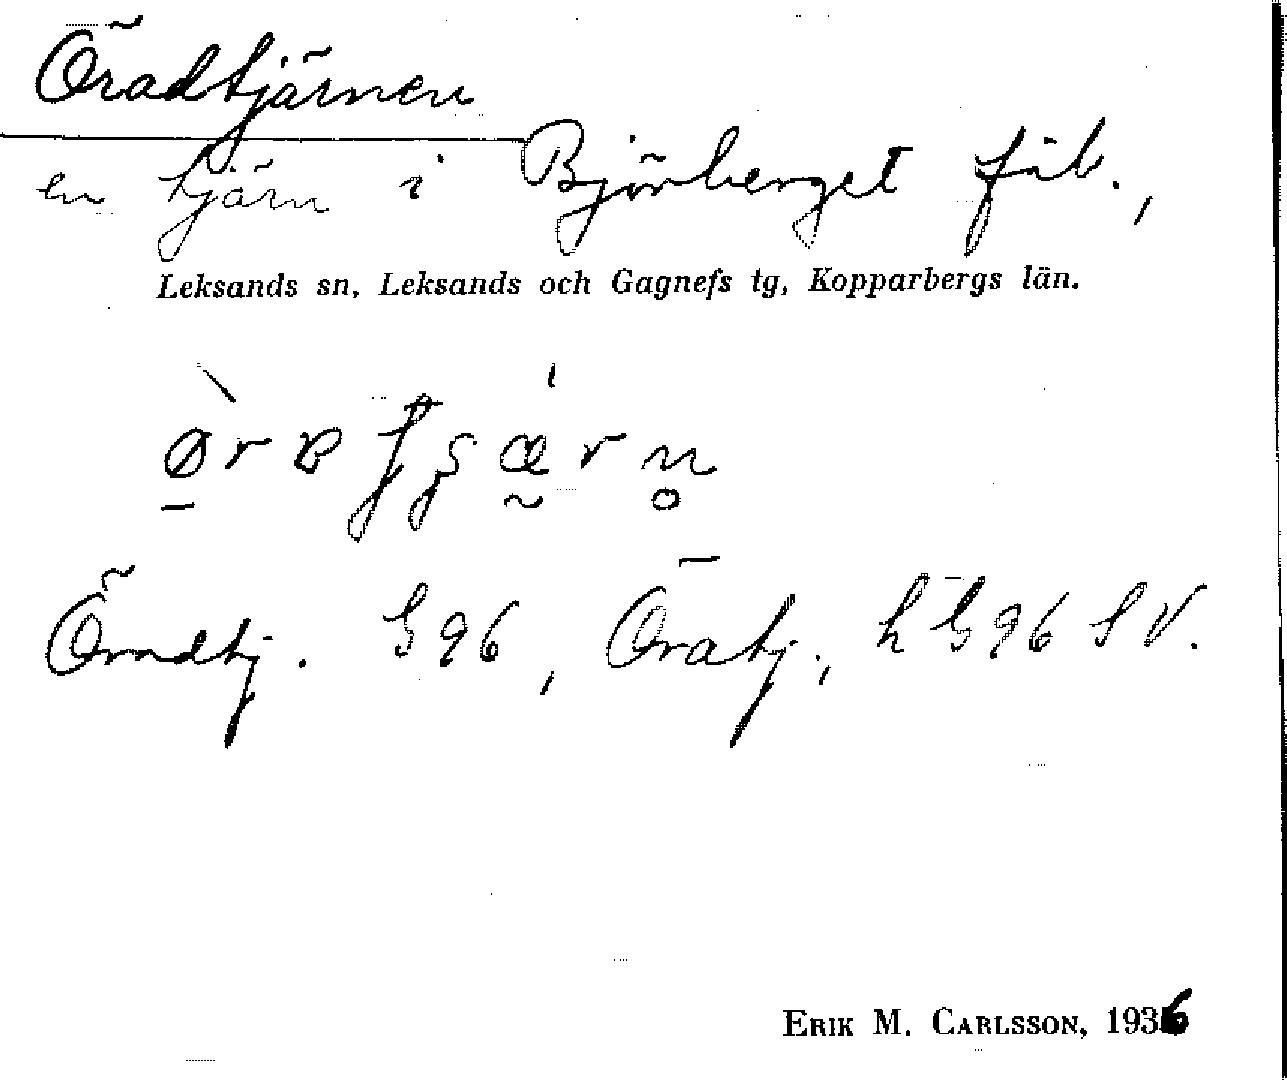 Öradtjärnen
en tjärn i Björberget fäb.,
Leksands sn, Leksands och Gagnefs tg, Kopparbergs län.
Öradtj. G96, Öratj.,
ERIK M. CARLSSON, 1936